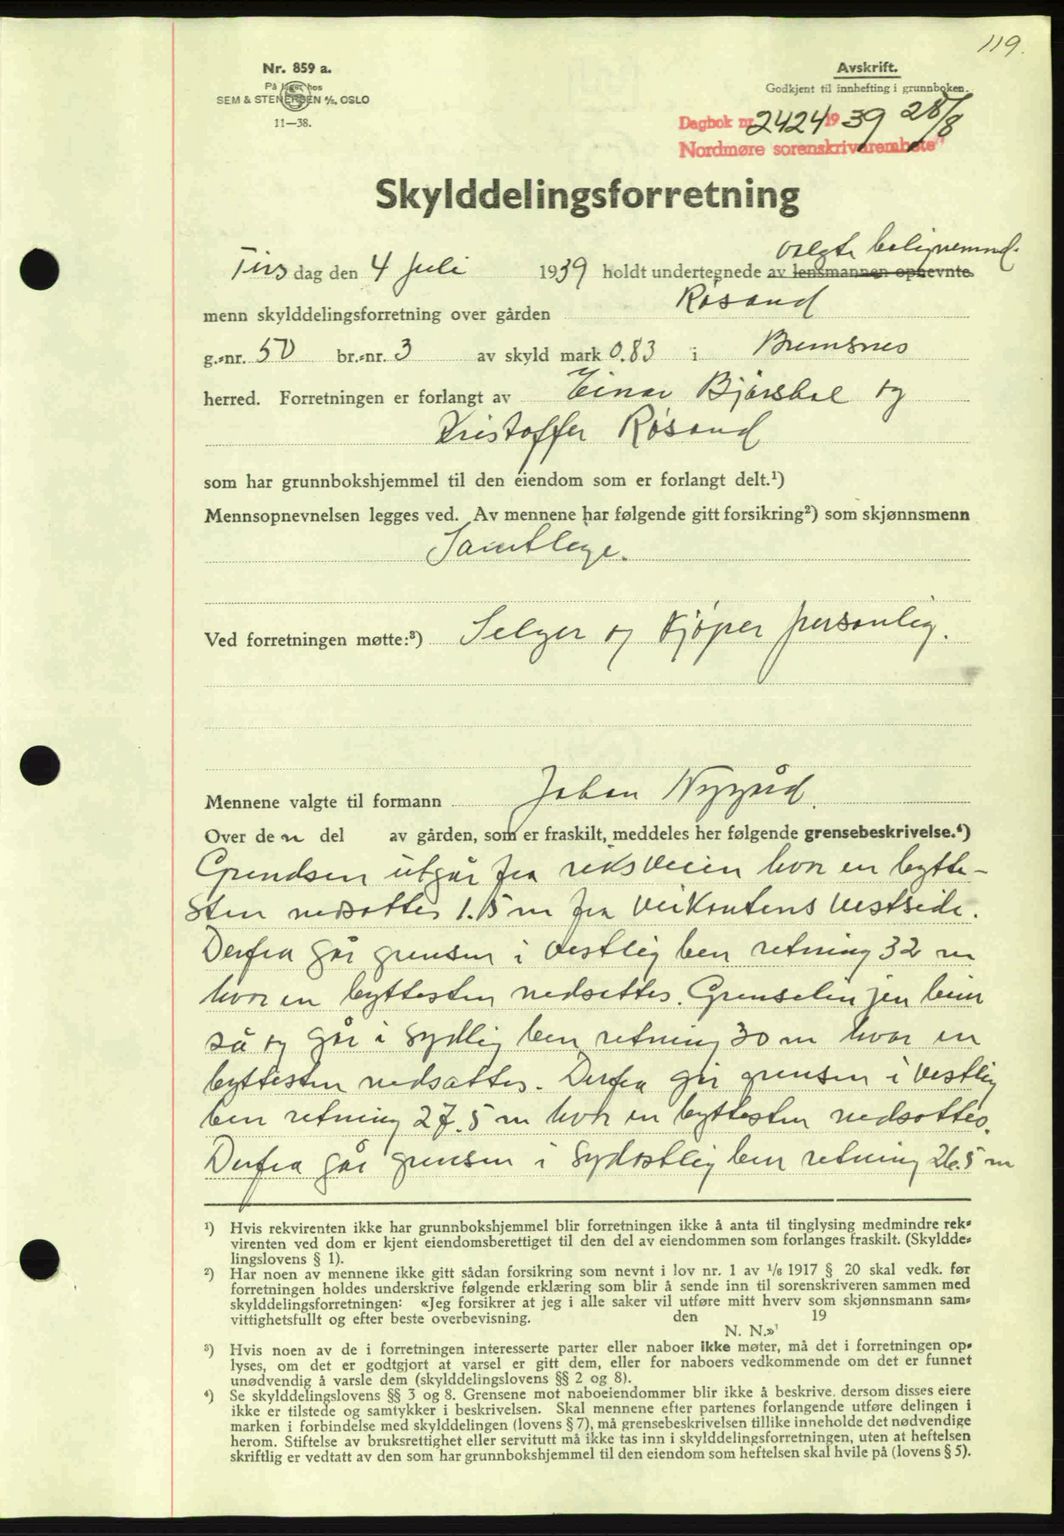 119.
Nr. 859 a.
På lager hos
SEM & STENERSEN A/S, OSLO
11—38.
Avskrift.
Godkjent til innhefting i grunnboken.
Dagbok nr. 2424 1939 28/8
Nordmøre sorenskriverembete
Skylddelingsforretning
valgte
Tirsdag den 4 Juli 1939 holdt undertegnede av lensmannen opnevnte
menn skylddelingsforretning over gården Røsand
g.-nr. 50 br.-nr. 3 av skyld mark 0.83 i Bremsnes
herred. Forretningen er forlangt av Einar Bjørshol og
Kristoffer Røsand
som har grunnbokshjemmel til den eiendom som er forlangt delt.¹)
Mennsopnevnelsen legges ved. Av mennene har følgende gitt forsikring²) som skjønnsmenn
Samtlige.
Ved forretningen møtte:³) Selger og kjøper personlig.
Mennene valgte til formann Johan Nygård.
Over den del av gården, som er fraskilt, meddeles her følgende grensebeskrivelse.⁴)
Grendsen utgår fra riksveien hvor en bytte-
sten nedsattes 1.15 m fra veikantens vestside.
Derfra går grensen i vestlig ben retning 32 m
hvor en byttesten nedsettes. Grenselinjen
så og går i sydlig ben retning 30 m hvor en
byttesten nedsattes. Derfra går grensen i vestlig
ben retning 27.5 m hvor en byttesten nedsattes.
Derfra går grensen i sydostlig ben retning 26.5 m
¹) Hvis rekvirenten ikke har grunnbokshjemmel blir forretningen ikke å anta til tinglysing medmindre rek-
virenten ved dom er kjent eiendomsberettiget til den del av eiendommen som forlanges fraskilt. (Skyldde-
lingslovens § 1).
²) Har noen av mennene ikke gitt sådan forsikring som nevnt i lov nr. 1 av 1/6 1917 § 20 skal vedk. før
forretningen holdes underskrive følgende erklæring som blir å sende inn til sorenskriveren sammen med
skylddelingsforretningen: «Jeg forsikrer at jeg i alle saker vil utføre mitt hverv som skjønnsmann sam-
vittighetsfullt og efter beste overbevisning. den 19
N. N.»
³) Hvis noen av de i forretningen interesserte parter eller naboer ikke møter, må det i forretningen op-
lyses, om det er godtgjort at varsel er gitt dem, eller for naboers vedkommende om det er funnet
unødvendig å varsle dem (skylddelingslovens §§ 2 og 8).
⁴) Se skylddelingslovens §§ 3 og 8. Grensene mot naboeiendommer blir ikke å beskrive, dersom disses eiere
ikke er tilstede og samtykker i beskrivelsen. Skal mennene efter partenes forlangende utføre delingen i
marken i forbindelse med skylddelingen (lovens § 7), må grensebeskrivelsen tillike inneholde det nødvendige
herom. Stiftelse av bruksrettighet eller servitutt må ikke tas inn i skylddelingsforretningen, uten at heftelsen
skriftlig er vedtatt av den som har grunnbokshjemmel til den eiendom som heftelsen skal hvile på (lovens § 5).